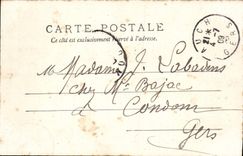 CARTE POSTALE
Ce côté est exclusivement réservé à l'adresse.
AUCH
21 *
4-7
09
GERS
Madame J. Labadens
chez Me Bajac
Condom
Gers